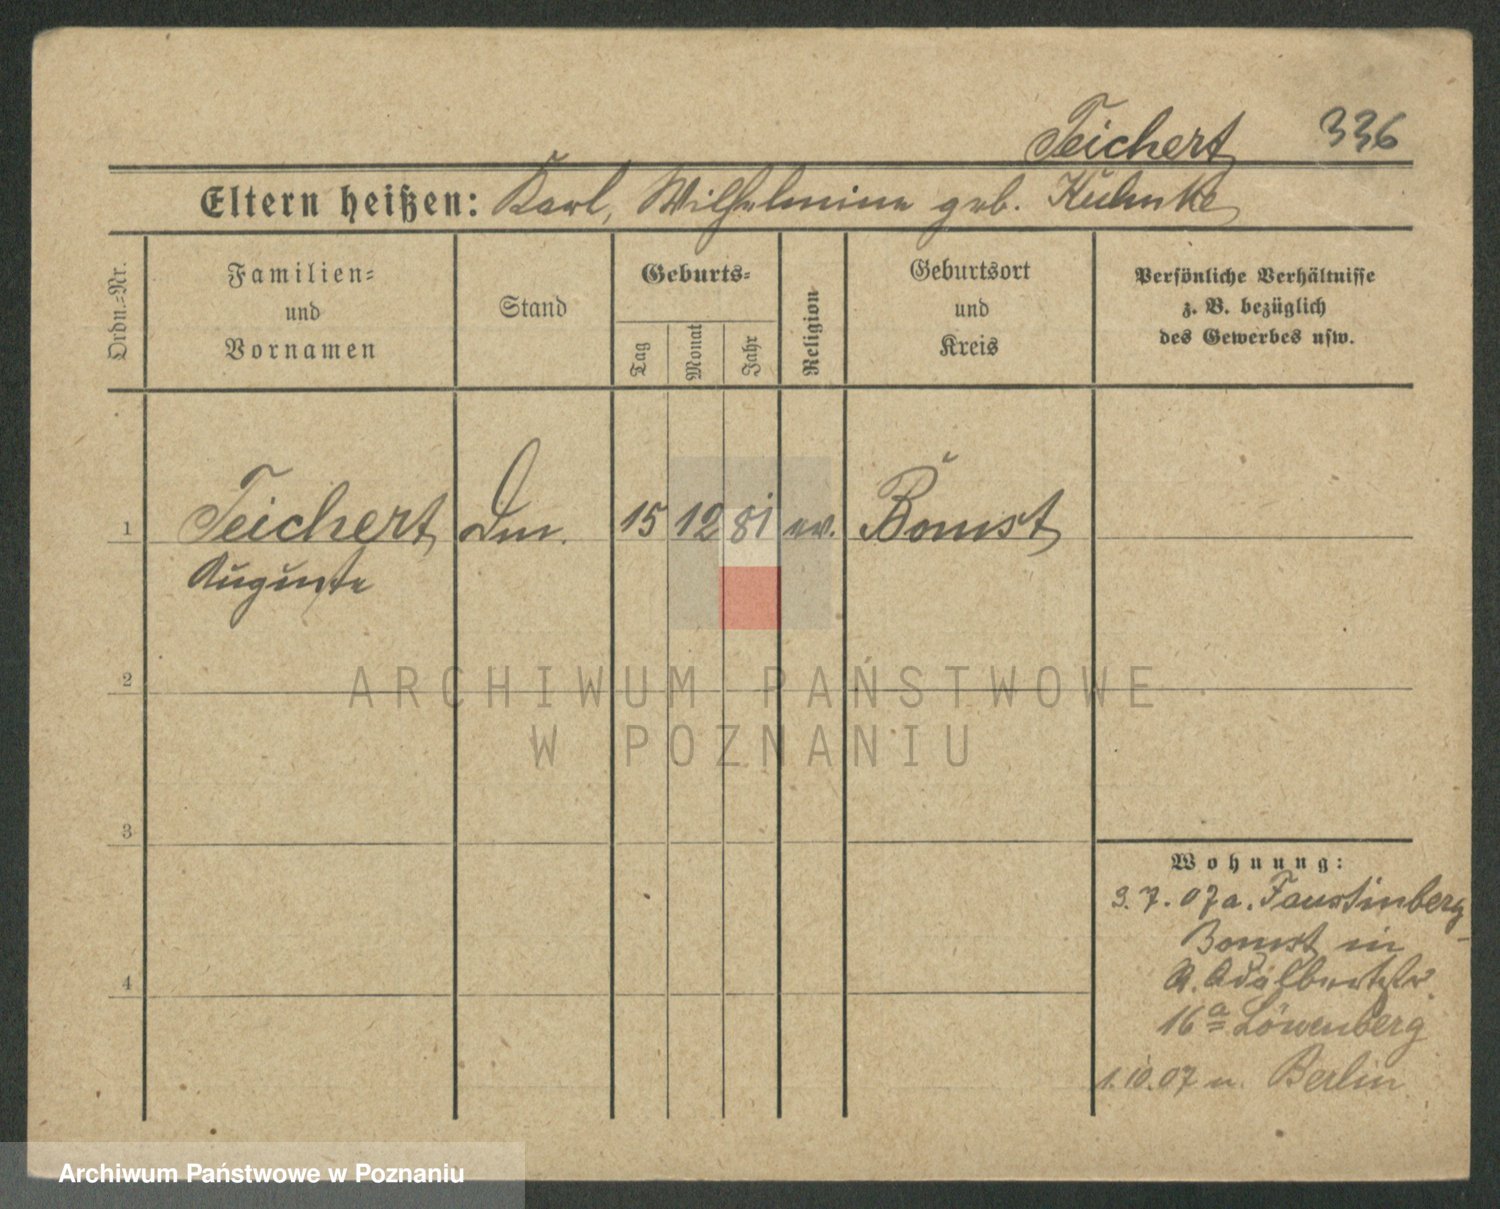 Teichert 336
Eltern heißen: Karl, Wilhelmine geb. Kuhnke
Ordn.-Nr.
Familien-
und
Vornamen
Stand
Geburts-
Tag
Monat
Jahr
Religion
Geburtsort
und
Kreis
Persönliche Verhältnisse
z. B. bezüglich
des Gewerbes usw.
1 Teichert Dm. 15 12 81 ev. Bomst
Auguste
2
ARCHIWUM PAŃSTWOWE
W POZNANIU
3
Wohnung:
3.7.07 a. Faustinberg
Bomst in
4
16a Löwenberg
1.10.07 n. Berlin
Archiwum Państwowe w Poznaniu